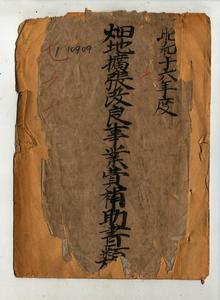 昭和十六年度
畑地擴張改良事業費補助書類
10909